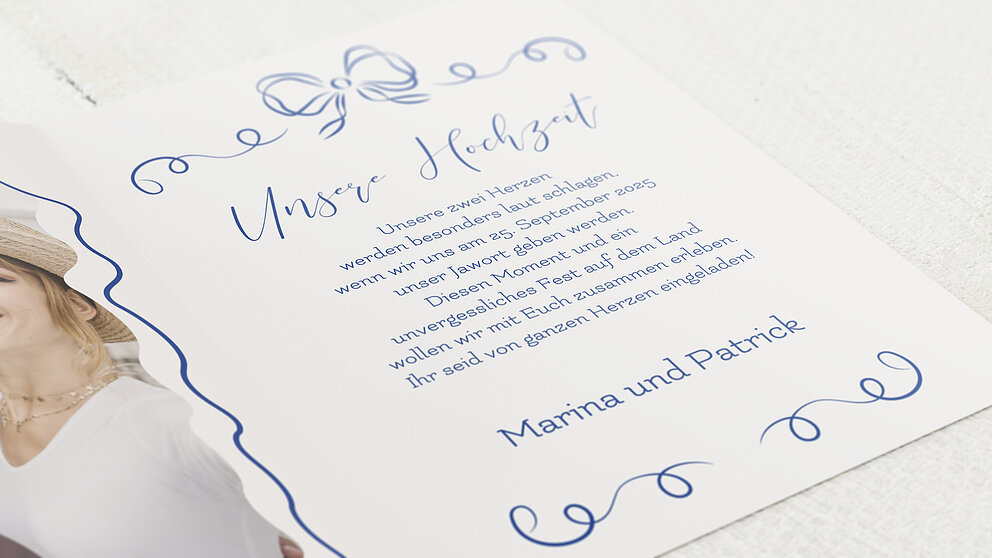 Unsere Hochzeit
Unsere zwei Herzen
werden besonders laut schlagen,
wenn wir uns am 25. September 2025
unser Jawort geben werden.
Diesen Moment und ein
unvergessliches Fest auf dem Land
wollen wir mit Euch zusammen erleben.
Ihr seid von ganzen Herzen eingeladen!
Marina und Patrick